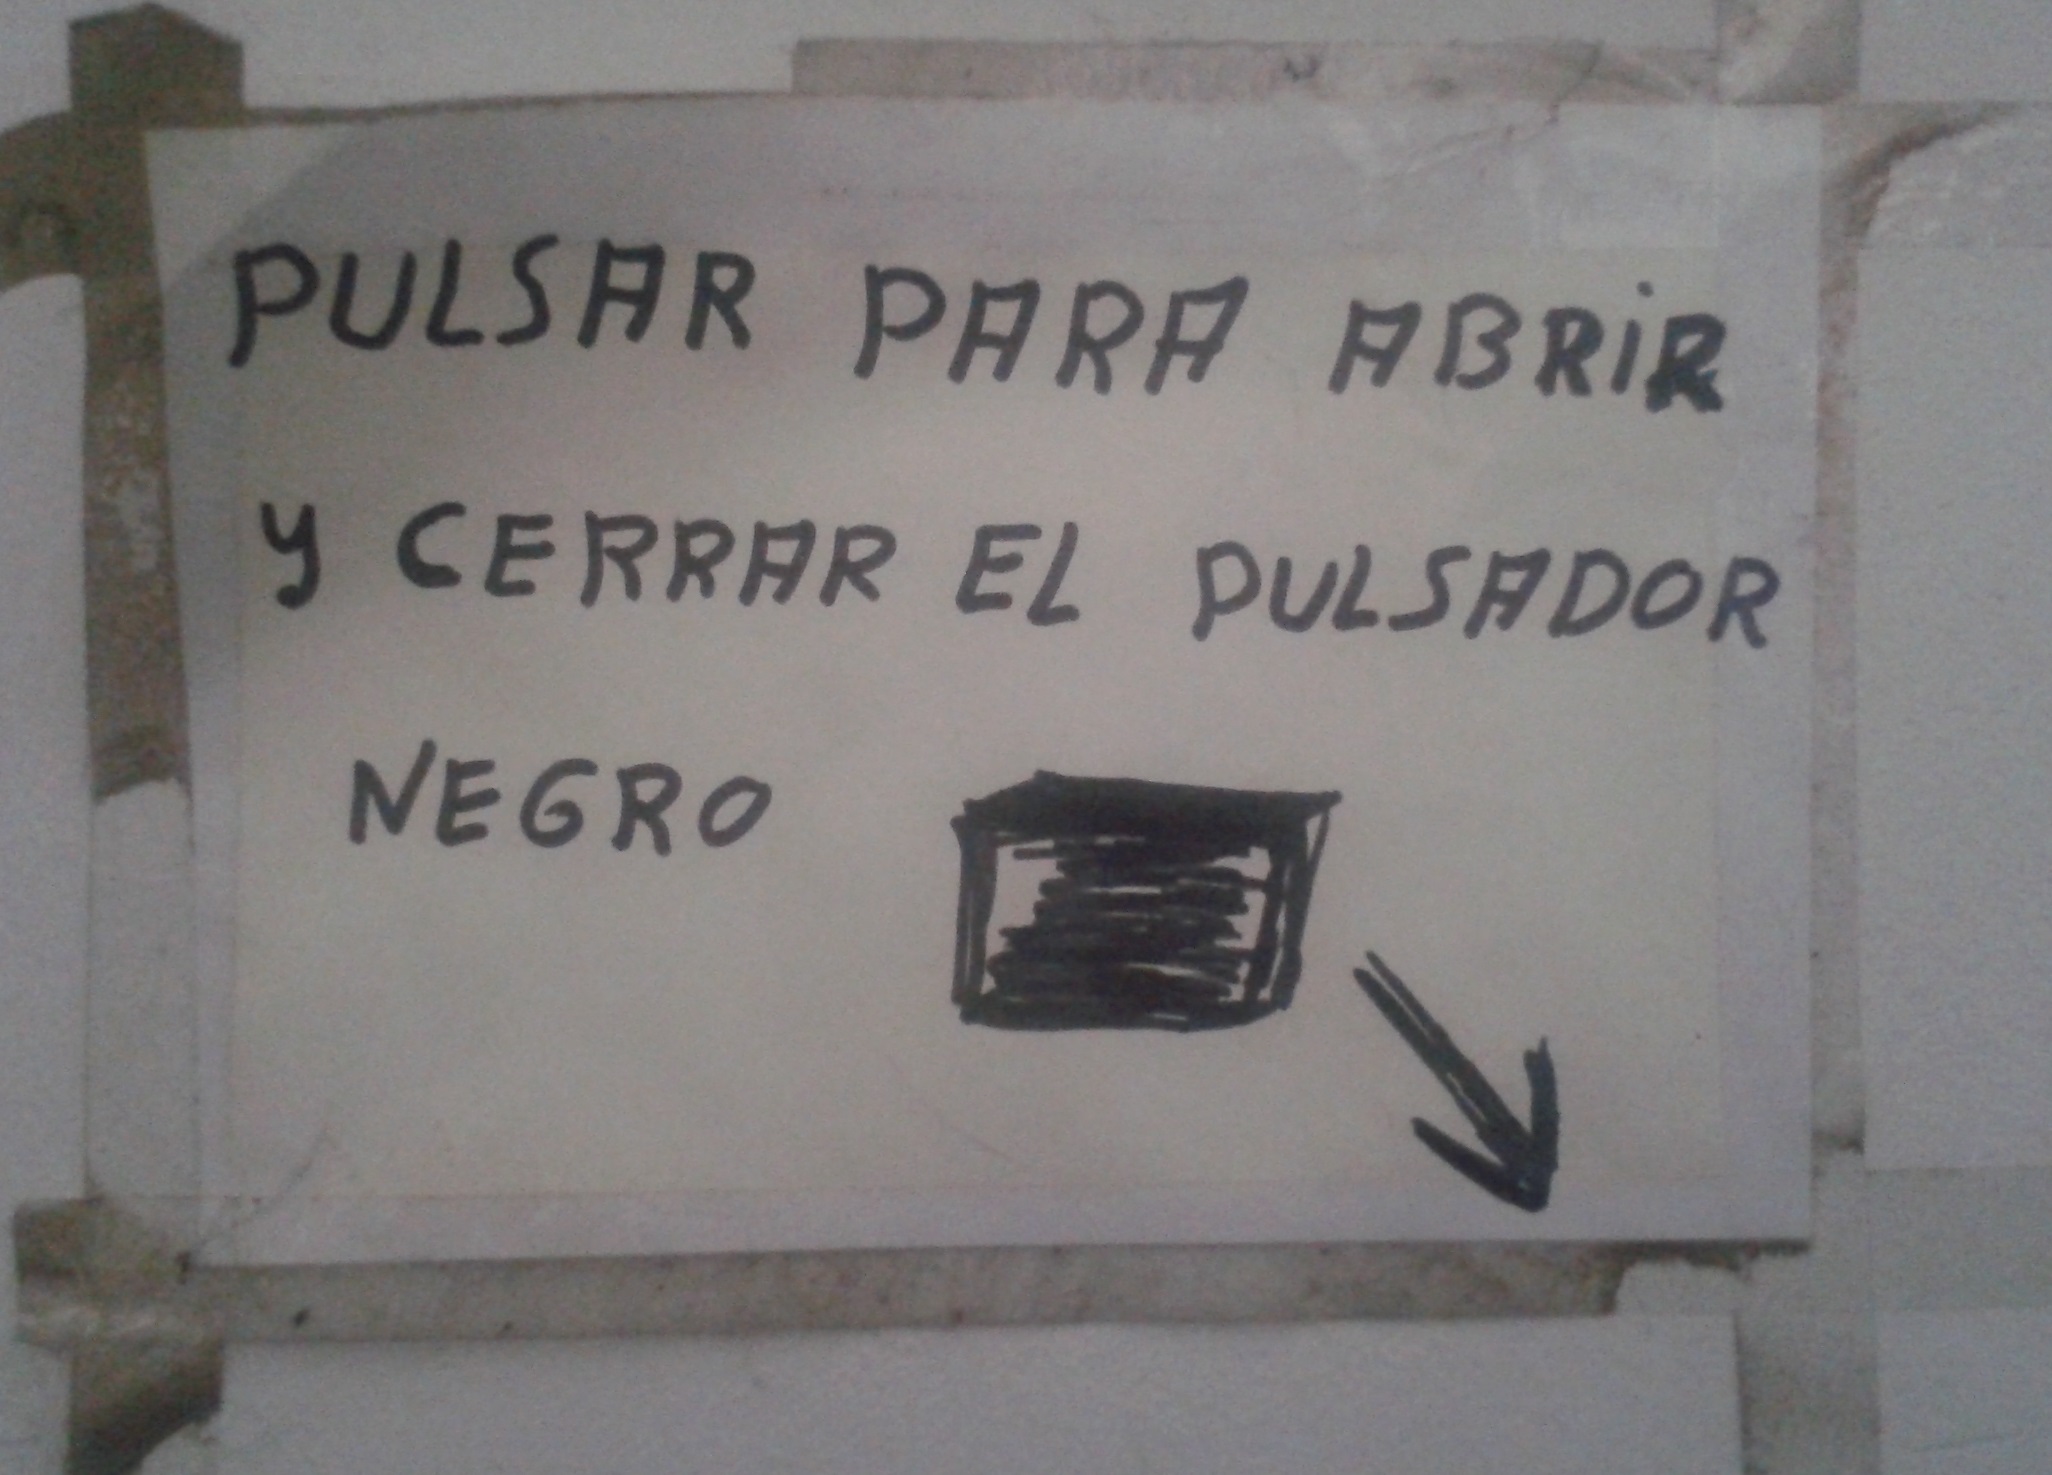 PULSAR PARA ABRiR
y CERRAR EL PULSADOR
NEGRO